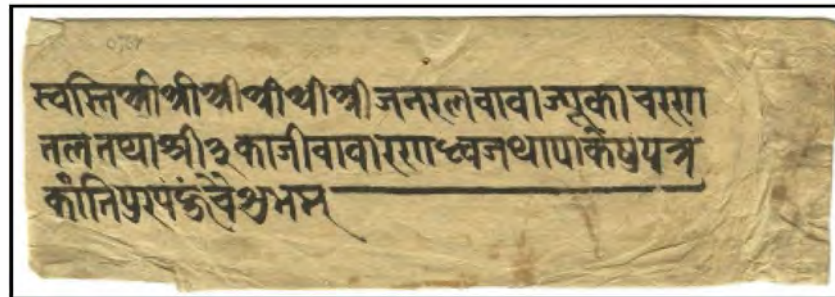 स्वस्तिश्रीश्रीश्रीश्रीश्रीश्रीजनरलवावाज्यूका चरण
तलतथाश्री३काजीवावारणध्वजथापाकेषुपत्र
कांतिपुर शुभम्